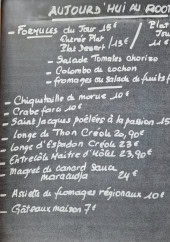 AUJOURD'HUI AU ROOT
- FORMULES du Jour 15€
Entrée Plat
Plat Dessert / 13€
Plat
Jour
11€
- Salade Tomates chorizo
- Colombo de cochon
- fromages ou salade de fruits f
- Chiquetaille de morue 10€
- Crabe farci 10€
- Saint Jacques poêlées à la passion 15
- Longe de Thon Créole 20,90€
- Longe d'Espadon Créole 23€
- Entrecôte Maître d'Hôtel 23,90€
- Magret de canard sauce
maracudja 24€
- Assiette de fromages régionaux 10€
- Gâteaux maison 7€